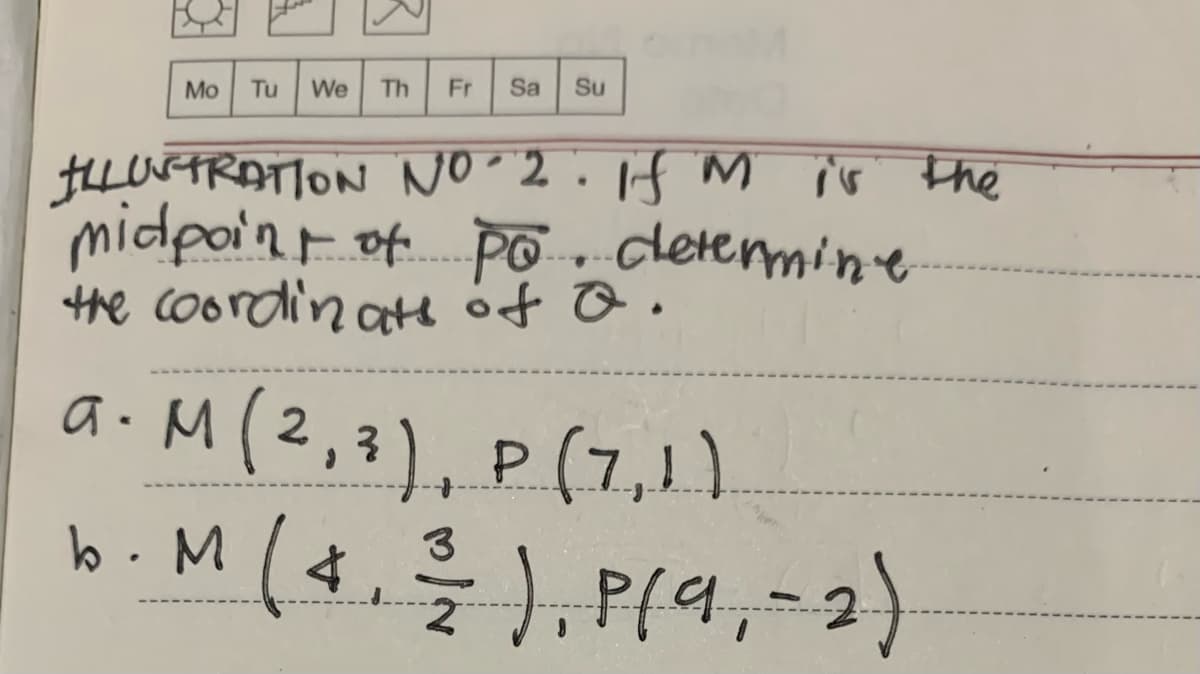 Mo Tu We Th Fr Sa Su
ILLUSTRATION NO-2. If M is the
midpoint of P̅Q̅. determine
the coordinate of Q.
a. M (2,3), P (7,1)
b. M (4, 3/2), P(9,-2)